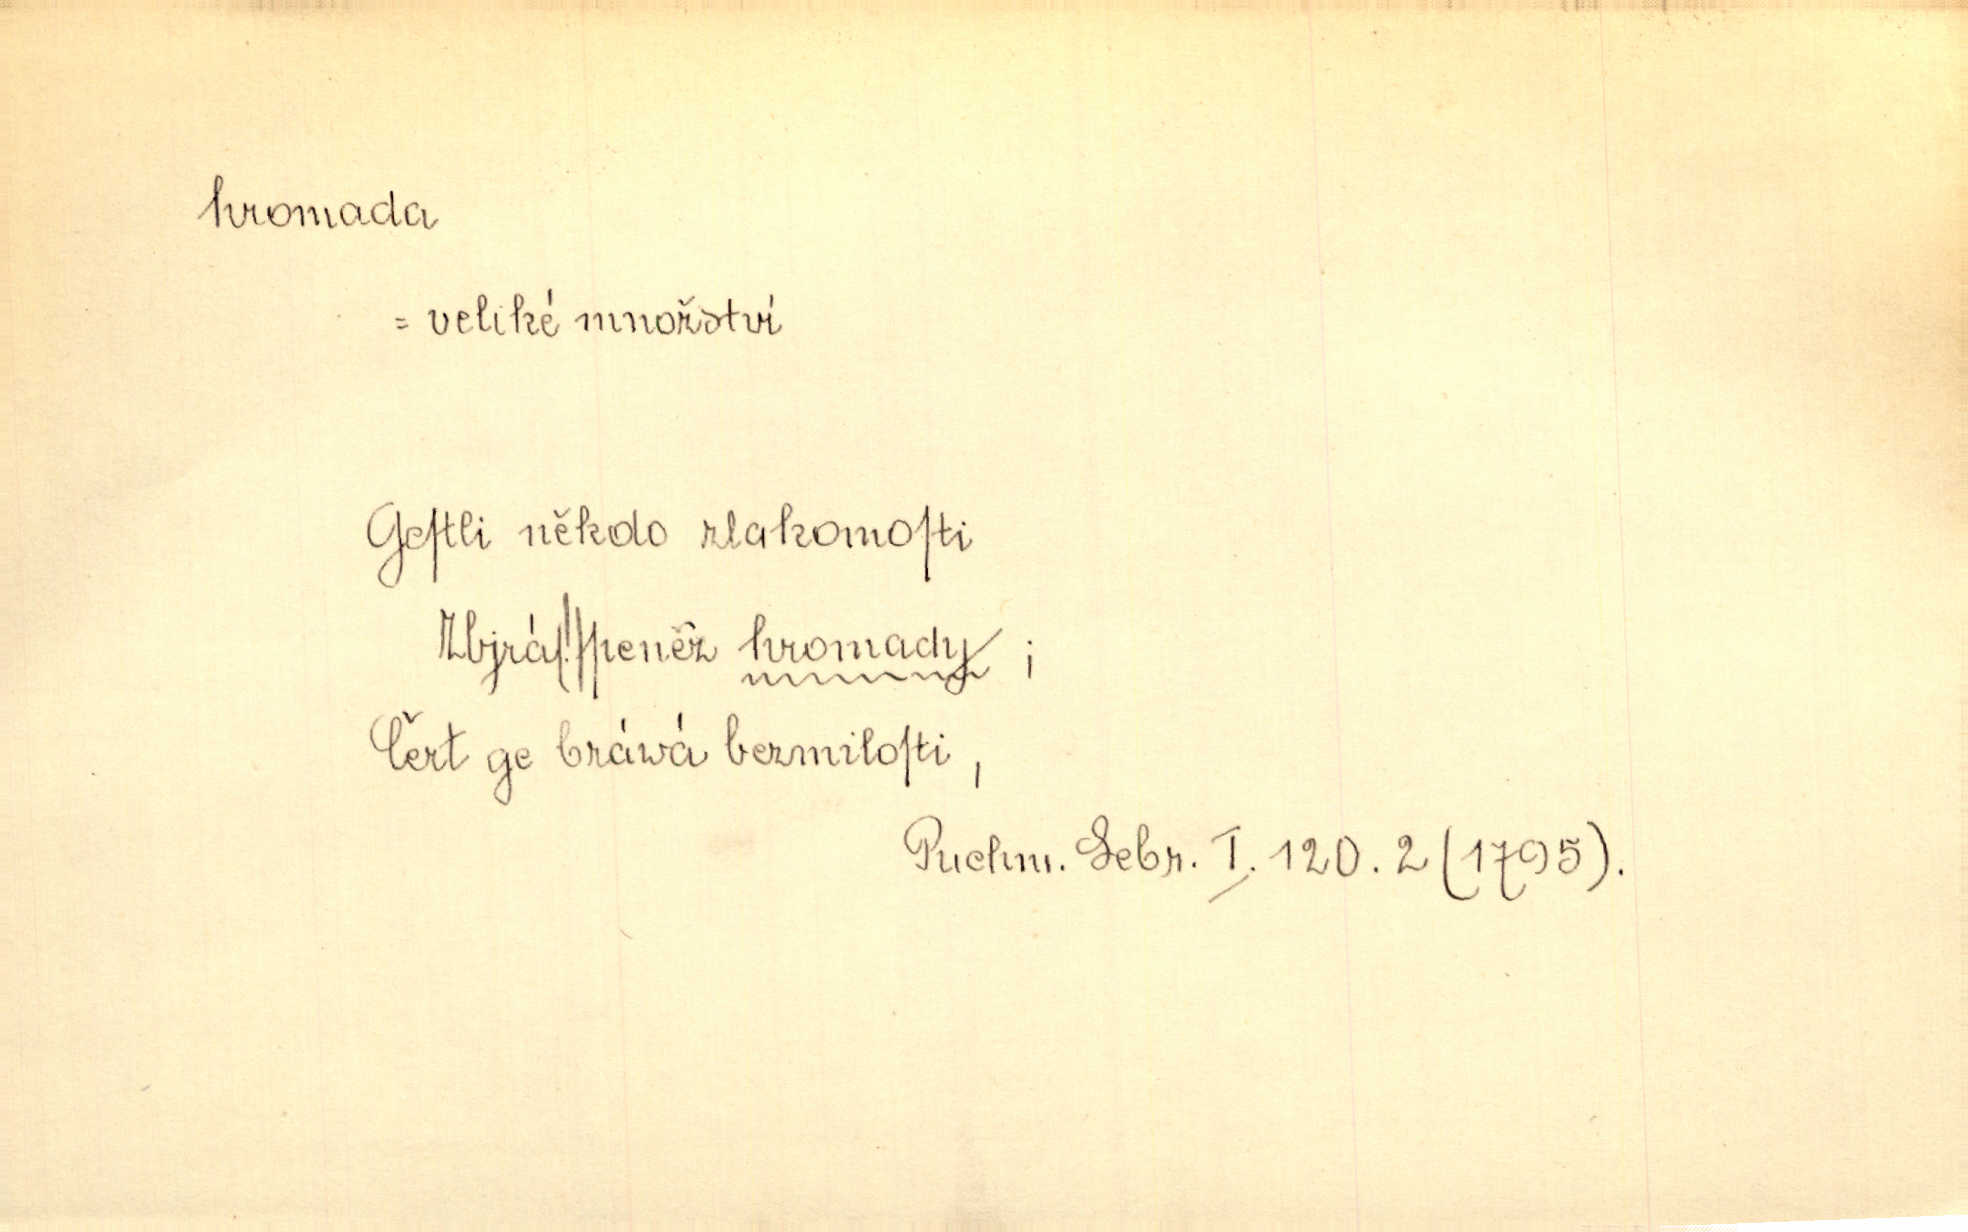 hromada
= veliké množství
Geſtli někdo zlakomoſti
Zbjrá peněz hromady ;
Čert ge bráwá bezmiloſti ,
Puchm. Sebr. I. 120. 2 (1795).